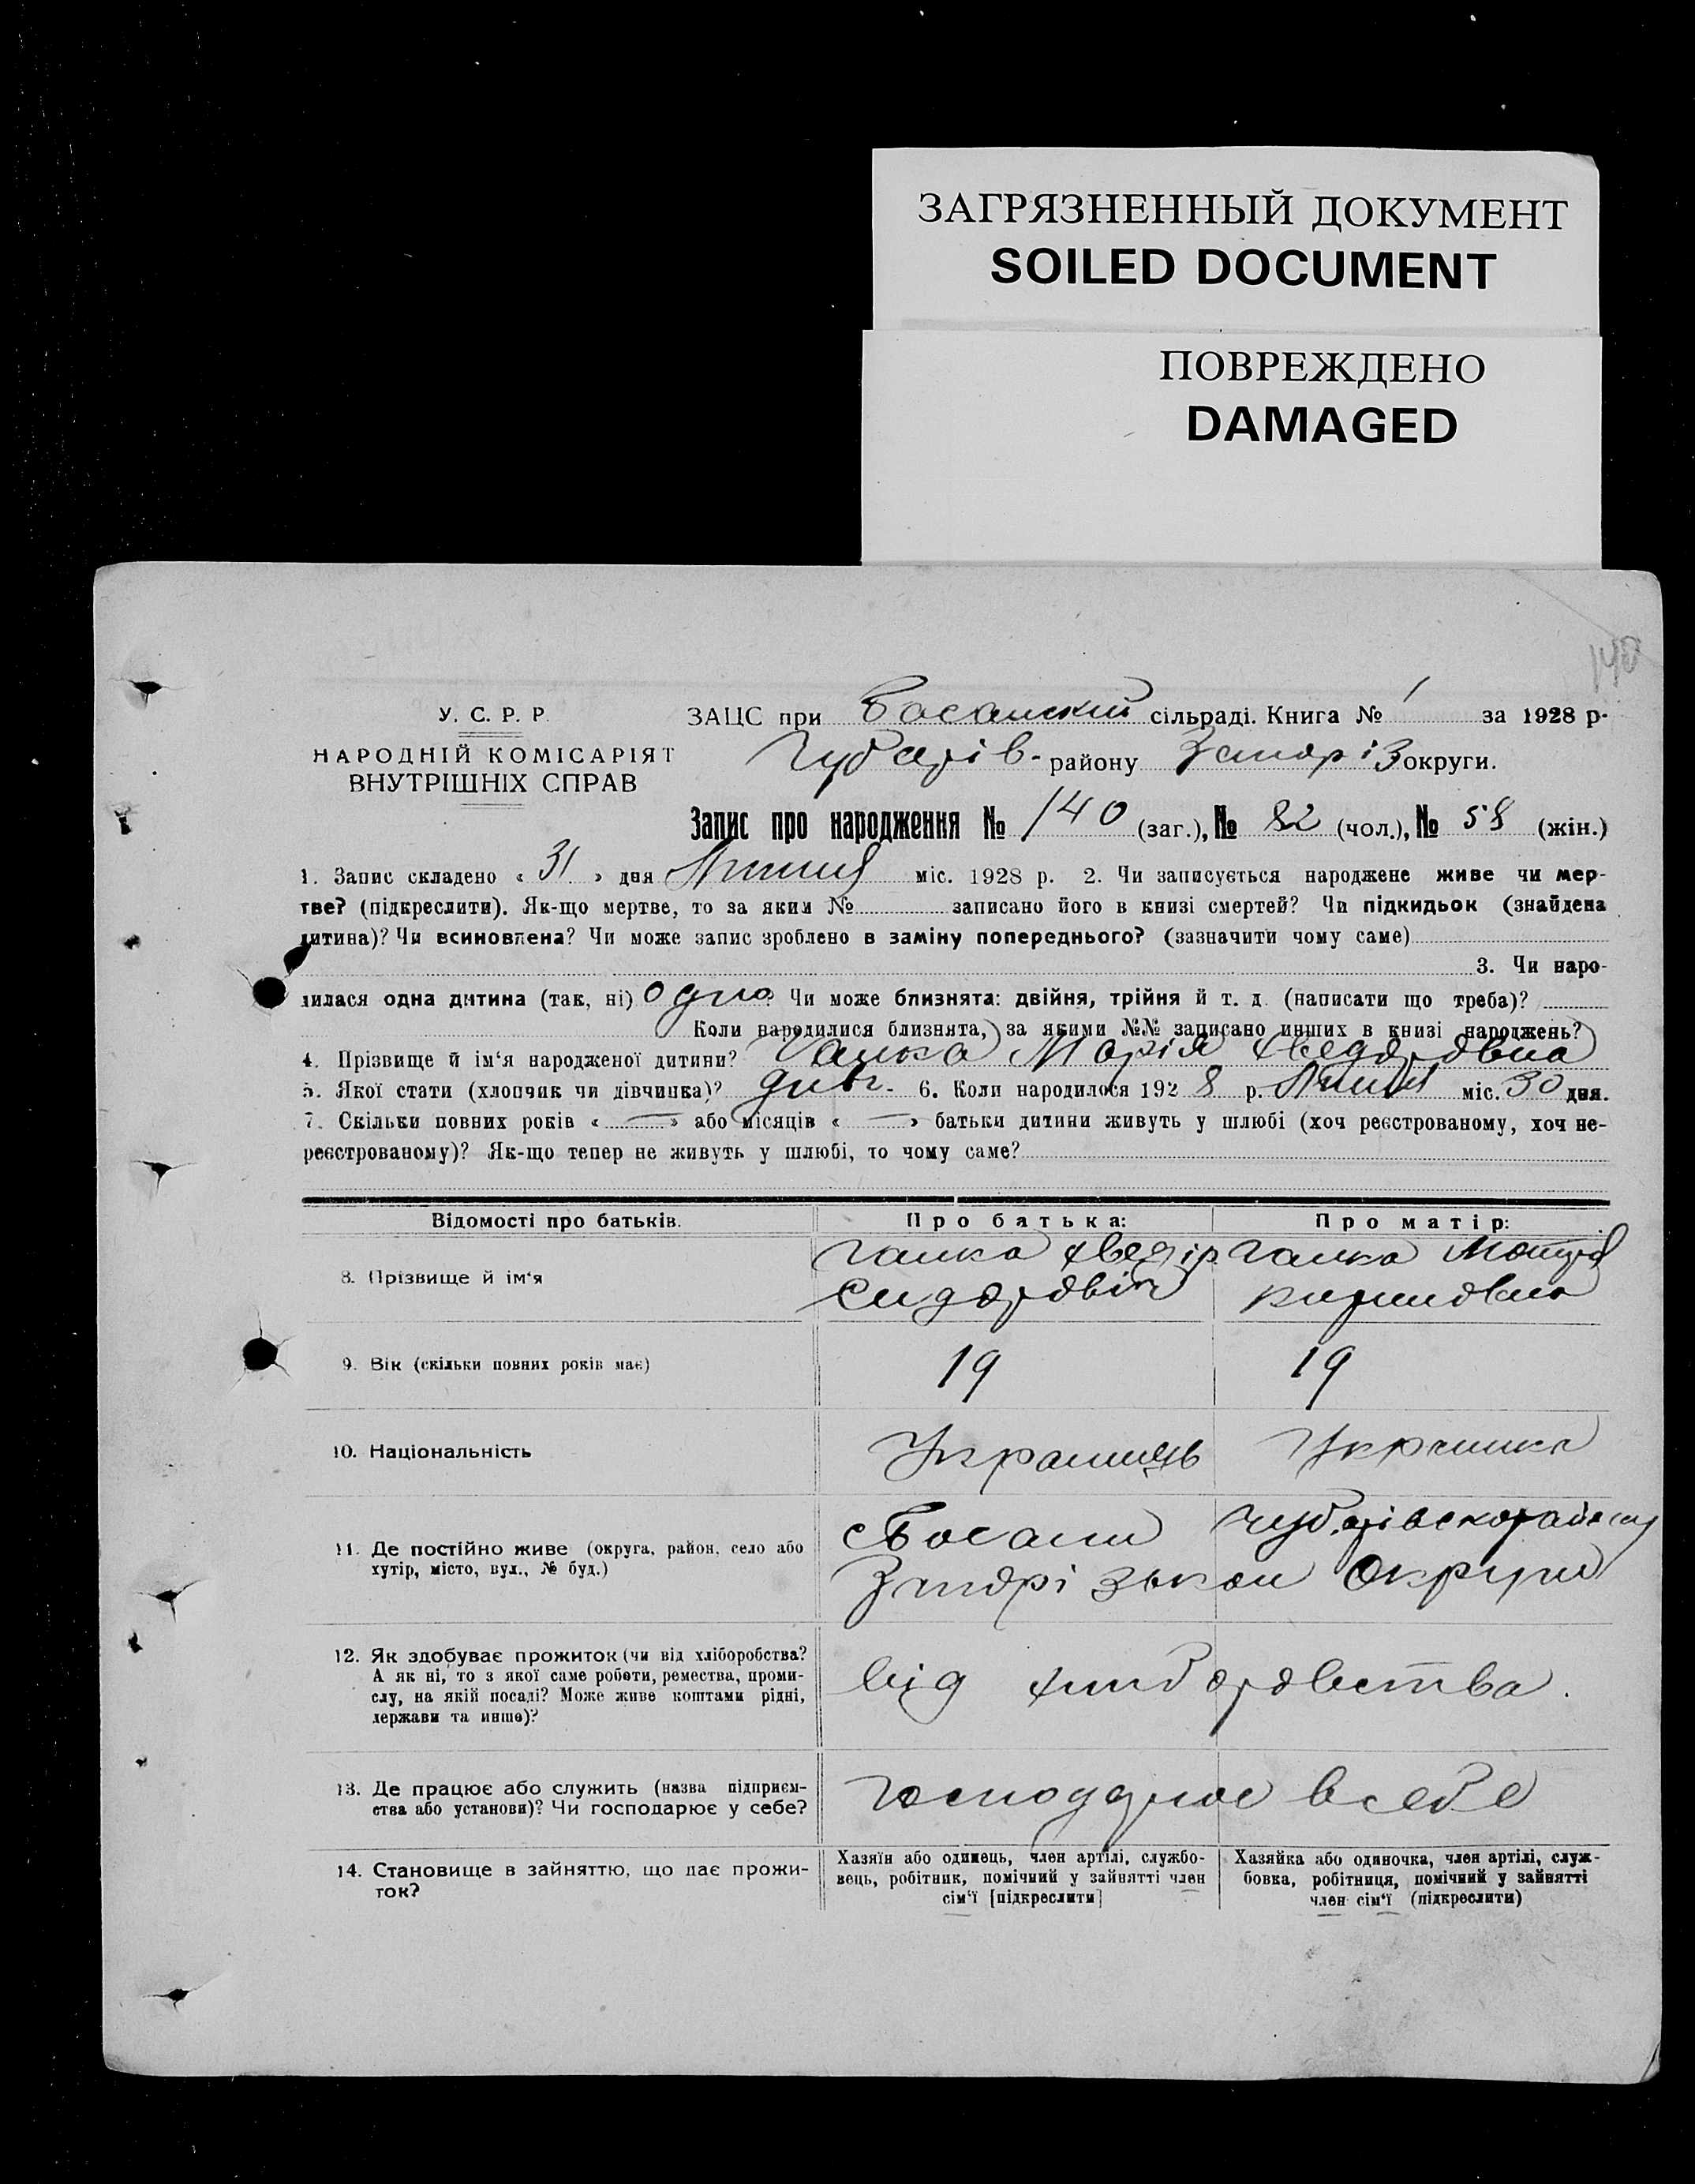 ЗАГРЯЗНЕННЫЙ ДОКУМЕНТ
SOILED DOCUMENT
ПОВРЕЖДЕНО
DAMAGED
140
У. С. Р. Р.
НАРОДНІЙ КОМІСАРІЯТ
ВНУТРІШНІХ СПРАВ
ЗАЦС при Басанский сільраді. Книга № 1 за 1928 р.
Чубарів- району Запоріз округи.
Запис про народження № 140 (заг.), № 82 (чол.), № 58 (жін.)
1. Запис складено « 31 » дня Липня міс. 1928 р. 2. Чи записується народжене живе чи мер-
тве? (підкреслити). Як-що мертве, то за яким № записано його в книзі смертей? Чи підкидьок (знайдена
дитина)? Чи всиновлена? Чи може запис зроблено в заміну попереднього? (зазначити чому саме)
3. Чи наро-
дилася одна дитина (так, ні) одно Чи може близнята: двійня, трійня й т. д. (написати що треба)?
Коли народилися близнята, за якими №№ записано инших в книзі народжень?
4. Прізвище й ім‘я народженої дитини? Галка Марія Хведоровна
5. Якої стати (хлопчик чи дівчинка)? дивч. 6. Коли народилося 192 8 р. Липня міс. 30 дня.
7. Скільки повних років « — » або місяців « — » батьки дитини живуть у шлюбі (хоч реєстрованому, хоч не-
реєстрованому)? Як-що тепер не живуть у шлюбі, то чому саме?
Відомості про батьків. Про батька: Про матір:
8. Прізвище й ім‘я
Галка Хведір Галка Мотря
Сидоровіч Кириловна
9. Вік (скільки повних років має) 19 19
10. Національність Украинець Украинка
11. Де постійно живе (округа, район, село або
хутір, місто, вул., № буд.)
с Басани Чубарівскораиону
Запорізькои Округи
12. Як здобуває прожиток (чи від хліборобства?
А як ні, то з якої саме роботи, ремества, проми-
слу, на якій посаді? Може живе коштами рідні,
держави та инше)?
від хлиборовства.
13. Де працює або служить (назва підприєм-
ства або установи)? Чи господарює у себе?
Господдрює в себе
14. Становище в зайняттю, що дає прожи-
ток?
Хазяїн або одинець, член артілі, службо-
вець, робітник, помічний у зайнятті член
сім‘ї [підкреслити]
Хазяйка або одиночка, член артілі, служ-
бовка, робітниця, помічний у зайнятті
член сім‘ї (підкреслити)